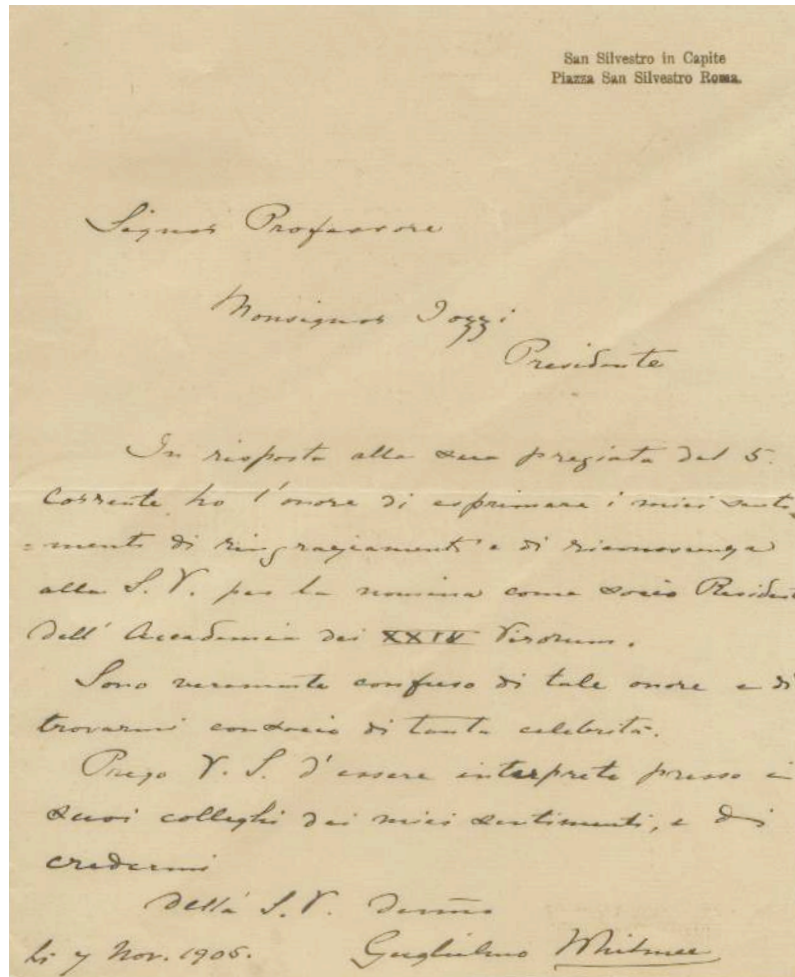 San Silvestro in Capite
Piazza San Silvestro Roma.
Signor Professore
Monsignor Iozzi
Presidente
In risposta alla sua pregiata del 5.
Corrente ho l'onore di esprimere i miei senti-
=menti di ringraziamenti e di riconoscenza
alla S. V. per la nomina come socio Resident
dell' Accademia dei XXIV Virorum.
Sono veramente confuso di tale onore e di
trovarmi consocio di tanta celebrità.
Prego V. S. d'essere interprete presso i
suoi colleghi dei miei sentimenti, e di
credermi
della S. V. Devmo
li 7 Nov. 1905. Guglielmo Whitmee